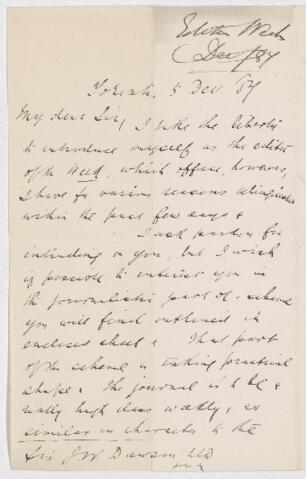 Editor Week
Dec /87
Toronto, 5 Dec /87
My dear Sir,
I take the liberty
to introduce myself as the editor
of the Week, which office, however,
I have for various reasons relinquished
within the past few days.
I ask pardon for
intruding on you, but I wish
if possible to interest you in
the journalistic part of a scheme
you will find outlined in
enclosed sheet. That part
of the scheme is taking practical
shape. The journal is to be a
really high class weekly, as
similar in character to the
Sir J W Dawson LLD